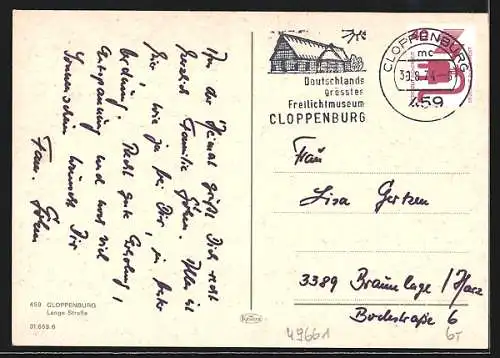 Aus der Heimat grüßt Dich recht
herzlich Familie Höhn. Alles ist
hier wie ja bei Dir, in bester
Ordnung. Recht gute Erholung,
Entspannung und noch viel
Sonnenschein wünscht Dir
Fam. Höhn
459 CLOPPENBURG
Lange Straße
Deutschlands
grösster
Freilichtmuseum
CLOPPENBURG
CLOPPENBURG
mc
459
Frau
Lisa Gertzen
3389 Braunlage / Harz
Bodestraße 6
49661
6T